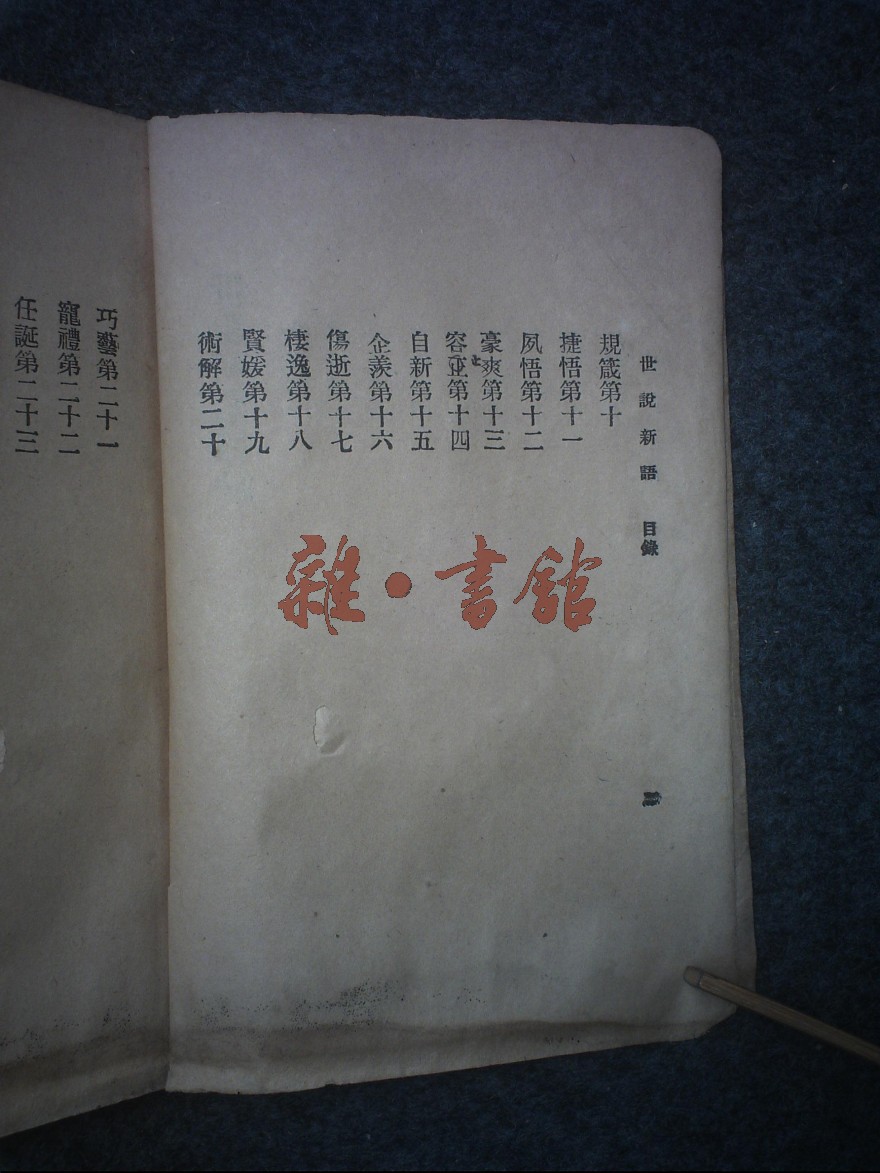 世說新語 目錄
規箴第十
捷悟第十一
夙悟第十二
豪爽第十三
容止第十四
自新第十五
企羨第十六
傷逝第十七
棲逸第十八
賢媛第十九
術解第二十
巧藝第二十一
寵禮第二十二
任誕第二十三
雜·書館